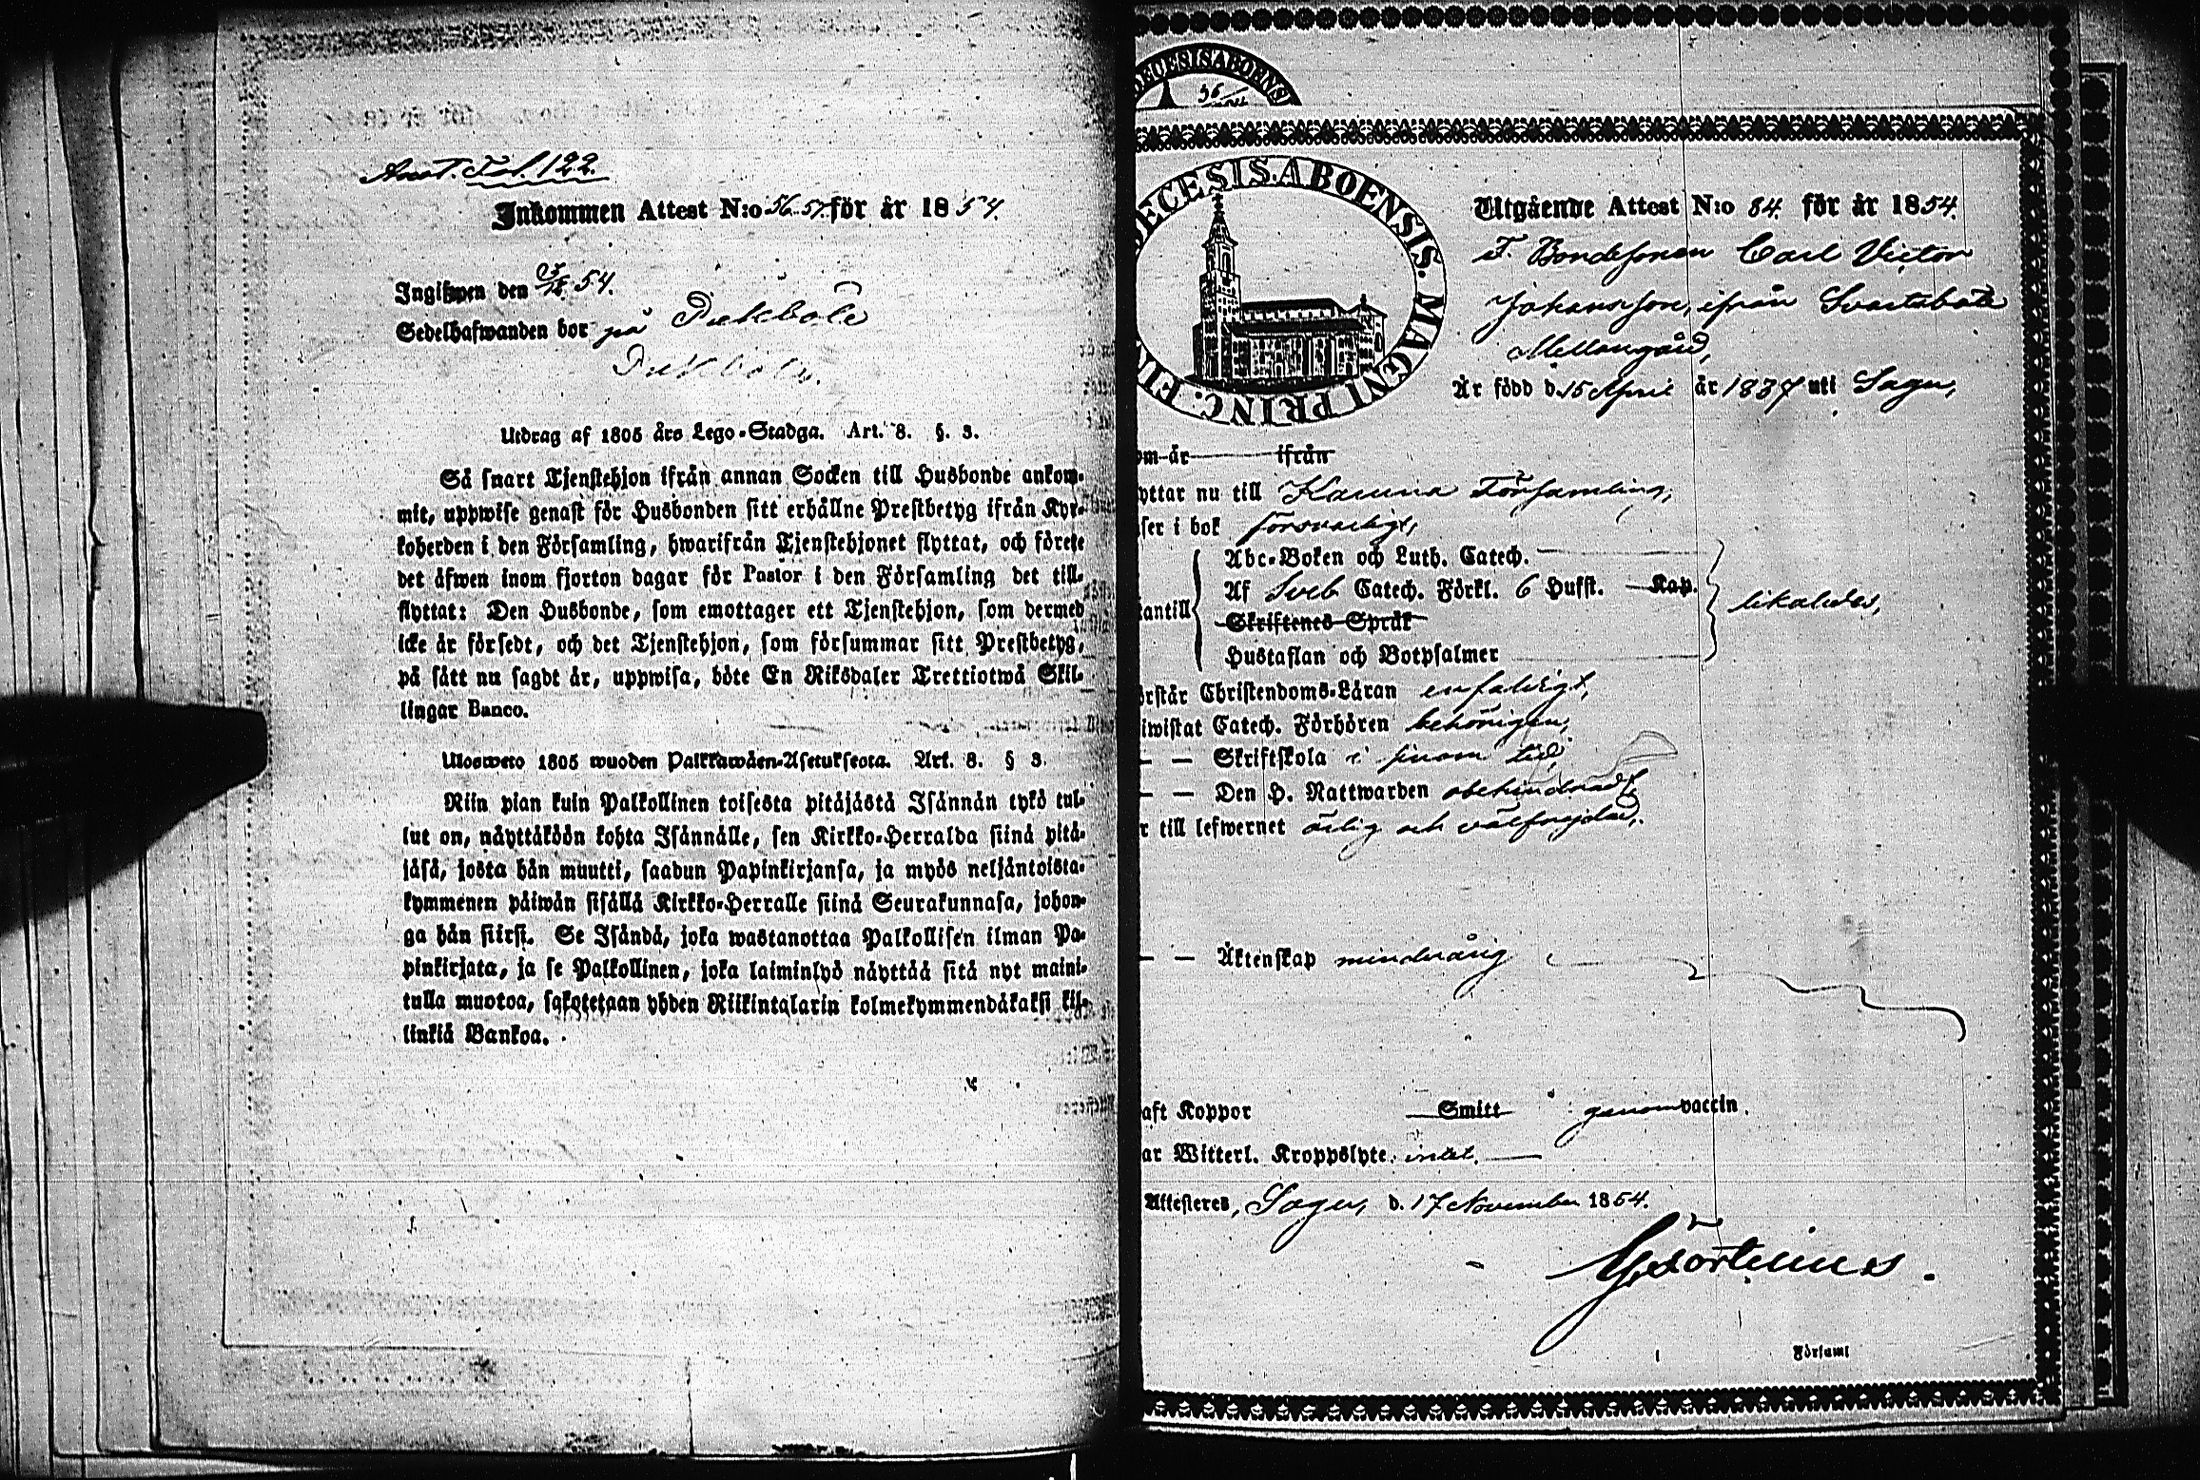 Anot. Fol. 122.
Inkommen Attest N:o 56-57. för år 1854.
Ingifwen den 3/12 54.
Sedelhafwanden bor på
Utdrag af 1805 års Lego-Stadga. Art. 8. §. 3.
Så snart Tjenstehjon ifrån annan Socken till Husbonde ankom-
mit, uppwise genast för Husbonden sitt erhållne Prestbetyg ifrån Kyr-
koherden i den Församling, hwarifrån Tjenstehjonet flyttat, och förete
det äfwen inom fjorton dagar för Pastor i den Församling det till-
flyttat: Den Husbonde, som emottager ett Tjenstehjon, som dermed
icke är försedt, och det Tjenstehjon, som försummar sitt Prestbetyg,
på sått nu sagdt är, uppwisa, böte En Riksdaler Trettiotwå Skil-
lingar Banco.
Ulosweto 1805 wuoden Palkkawåen-Asetuksesta. Art. 8. § 3.
Niin pian kuin Palkollinen toisesta pitäjästä Isännän tykö tul-
lut on, näyttäköön kohta Isännälle, sen Kirkko-Herralda siinä pitä-
jäsä, josta hän muutti, saadun Papinkirjansa, ja myös neljäntoista-
kymmenen päiwän sisällä Kirkko-Herralle siinä Seurakunnasa, johon-
ga hän siirsi. Se Isändä, joka wastanottaa Palkollisen ilman Pa-
pinkirjata, ja se Palkollinen, joka laiminlyö näyttää sitä nyt maini-
tulla muotoa, sakotetaan yhden Riikintalarin kolmekymmendäkaksi kil-
linkiä Bankoa.
DECESIS ABOENS
56
DECESIS. ABOENSIS. MAGNI PRINC. FI
Utgående Attest N:o 84. för år 1854.
F. Bondesonen Carl Victor
Johansson, ifrån Svartsbäck
Mellangård,
Är född d. 15 April år 1837 uti Sagu,
om år ifrån
yttar nu till Karuna Församling,
ser i bok försvarligt,
Abc-Boken och Luth. Catech.
antill Af Sveb Catech. Förkl. 6 Hufst. Kap. likaledes,
Skriftenes Språk
Hustaflan och Botpsalmer
örstår Christendoms-Läran enfaldigt,
iwistat Catech. Förhören behörigen,
— — Skriftskola i sinom tid,
— — Den H. Nattwarden obehindrad,
r till lefwernet ärlig och välfrejdad.
— — Äktenskap minderårig
aft Koppor Smitt genom vaccin.
ar Witterl. Kroppslyte intet.
Attesteres, Sagu, d. 17 November 1854.
Församl